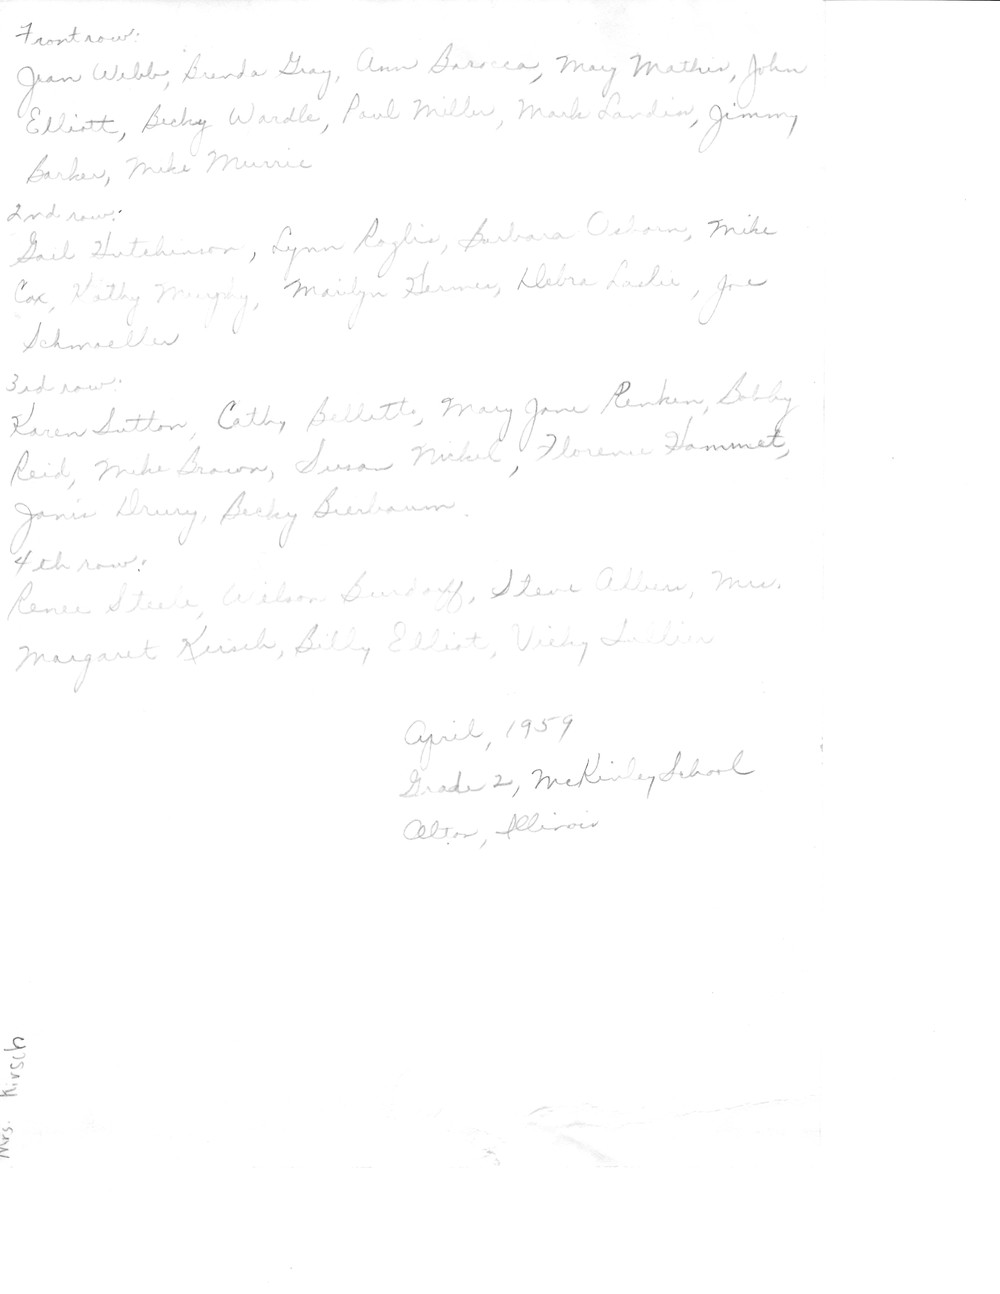 Front row:
Jean Webb, Brenda Gray, Ann Barocca, Mary Mathis, John
Elliott, Becky Wardle, Paul Miller, Mark Landis, Jimmy
Barker, Mike Murrie
2nd row:
Gail Hutchinson, Lynn Raglis, Barbara Osborn, Mike
Cox, Kathy Murphy, Marilyn Germer, Debra Laslie, Joe
Schmoeller
3rd row:
Karen Sutton, Cathy Belletto, Mary Jane Renken, Bobby
Reid, Mike Brown, Susan Nickel, Florence Hammet,
Janis Drury, Becky Bierbaum.
4th row:
Renee Steele, Wilson Burdoff, Steve Albers, Mrs.
Margaret Kirsch, Billy Elliot, Vicky
April, 1959
Grade 2, McKinley School
Alton, Illinois
Mrs. Kirsch